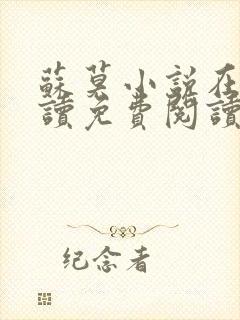 蘇莫小說在
讀免費閱讀
纪念者